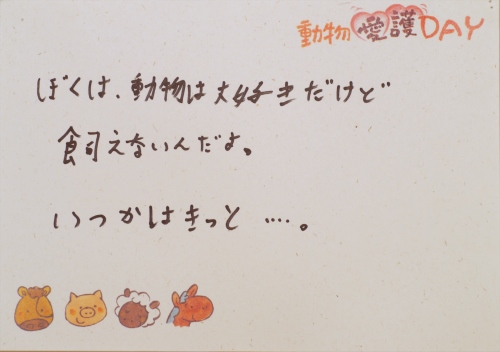 動物愛護DAY
ぼくは、動物は大好きだけど
飼えないんだよ。
いつかはきっと ‥‥。